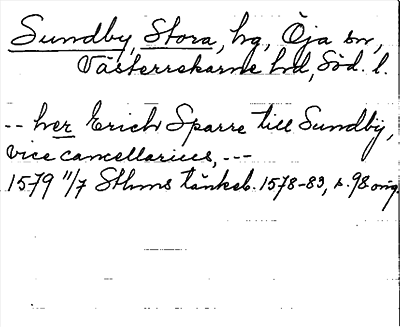 Sundby, Stora, hg, Öja sn,
Västerrekarne hd, Söd. l.
-- her Erich Sparre till Sundbÿ,
vice cancellarius, ---
1579 11/7 Sthms tänkeb. 1578-83, s. 98 orig.